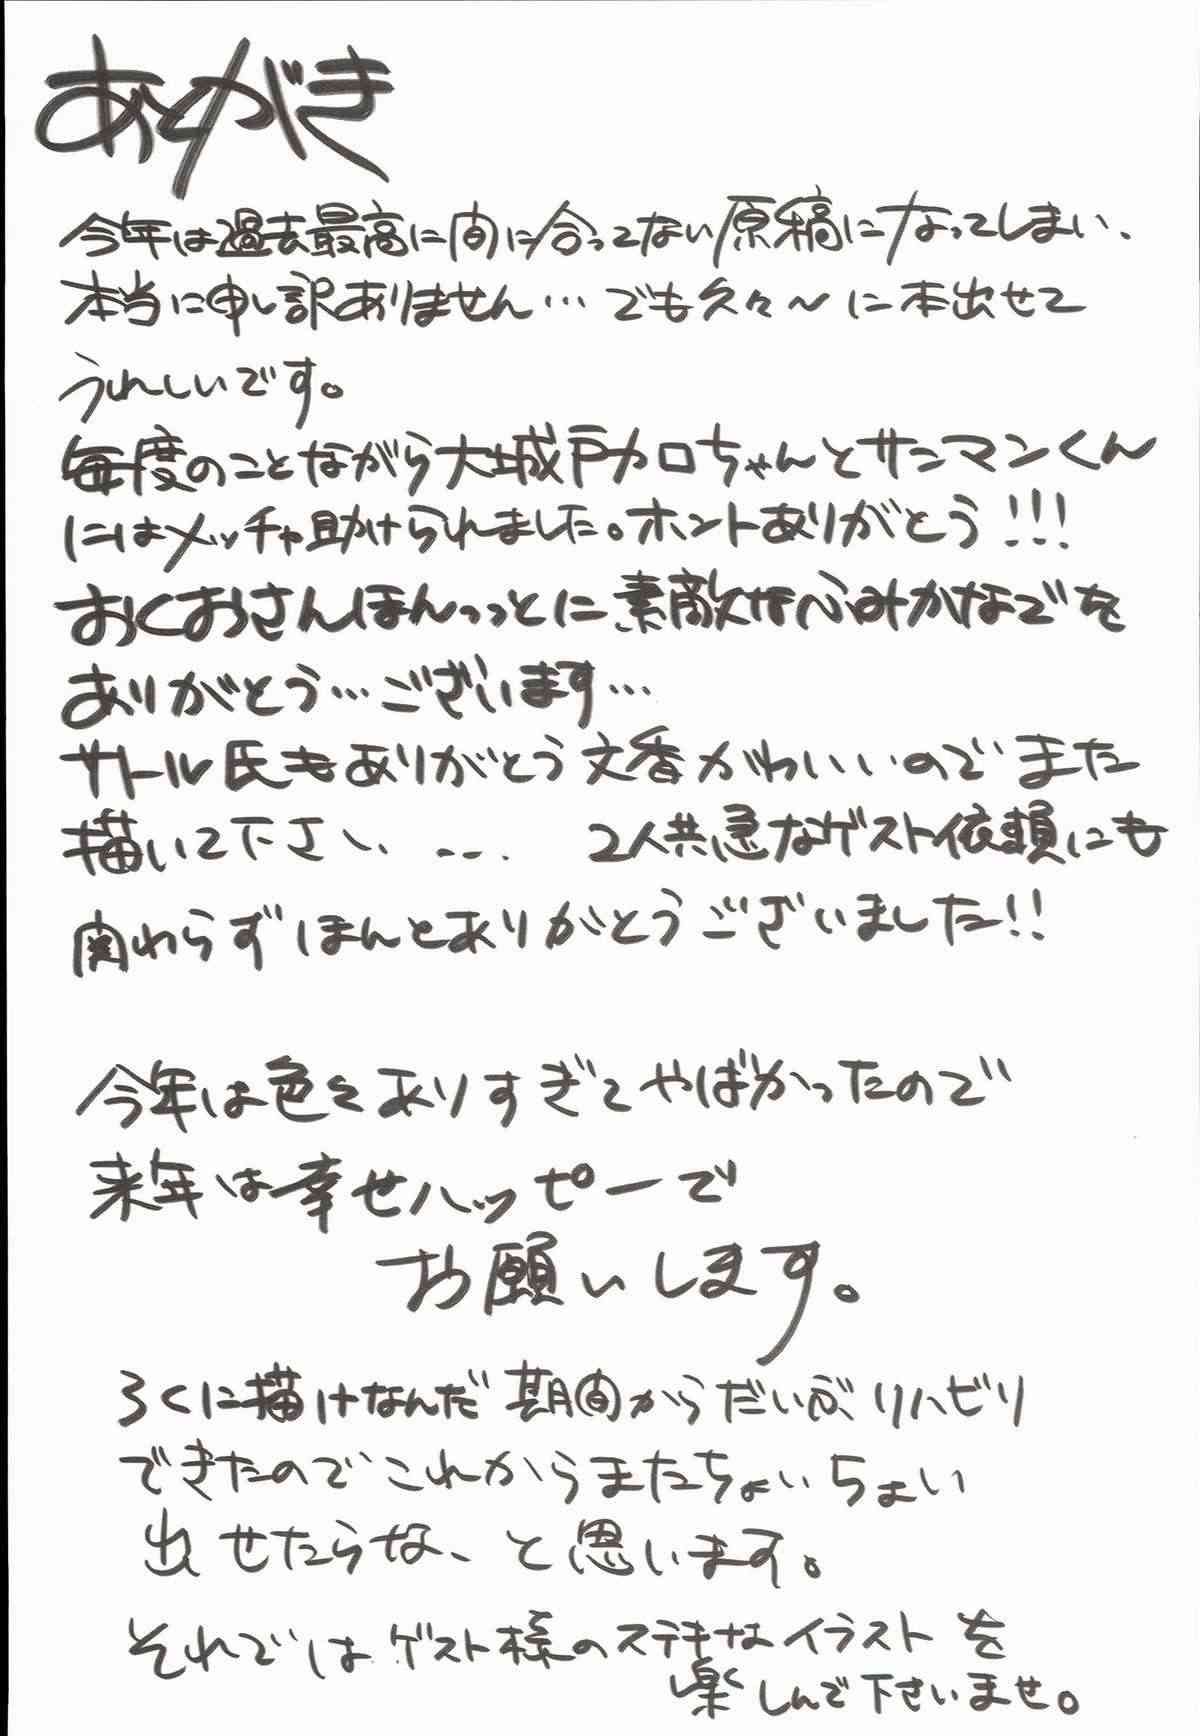 あとがき
今年は過去最高に間に合ってない原稿になってしまい、
本当に申し訳ありません…でも久々〜に本出せて
うれしいです。
毎度のことながら大城戸カロちゃんとサンマンくん
にはメッチャ助けられました。ホントありがとう!!!
おくおさんほんっっとに素敵なふみかなでを
ありがとう…ございます…
サトール氏もありがとう文香かわいいのでまた
描いて下さい… 2人共急なゲスト依頼にも
関わらずほんとありがとうございました!!
今年は色々ありすぎてやばかったので
来年は幸せハッピーで
お願いします。
ろくに描けなんだ期間からだいぶリハビリ
できたのでこれからまたちょいちょい
出せたらな、と思います。
それではゲスト様のステキなイラストを
楽しんで下さいませ。